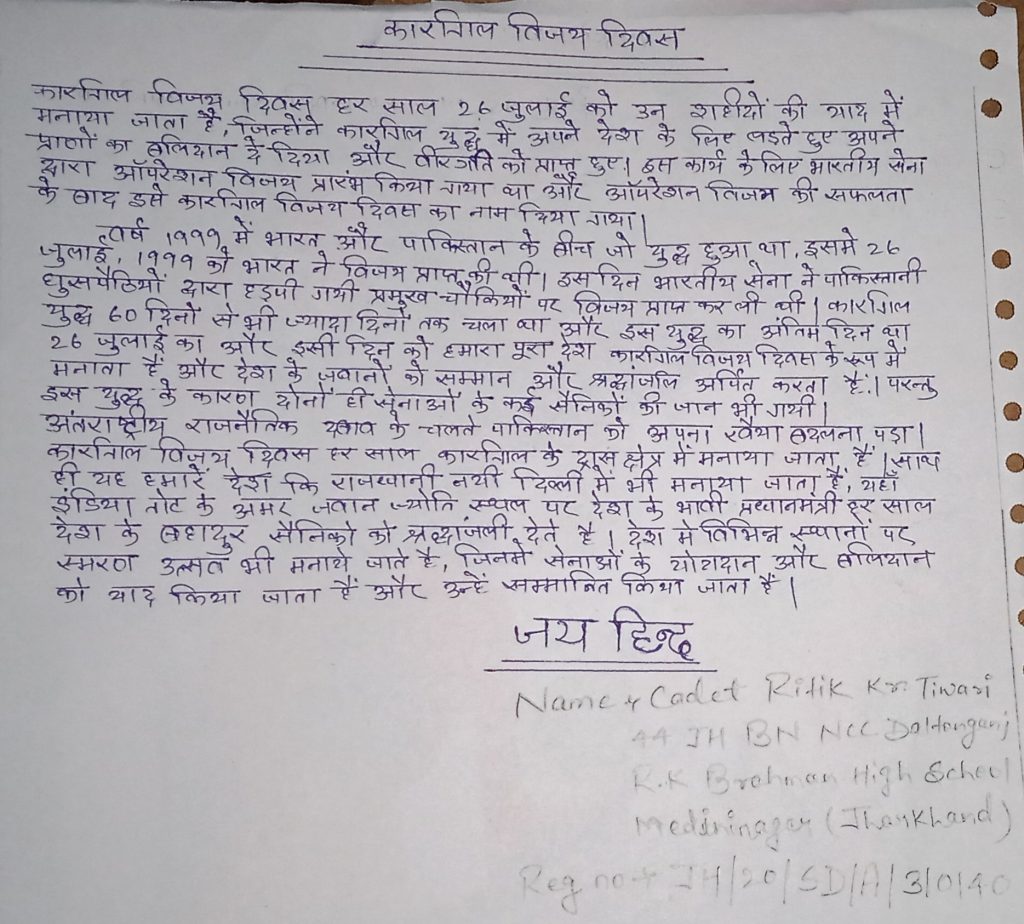 कारगिल विजय दिवस
कारगिल विजय दिवस हर साल 26 जुलाई को उन शहीदों की याद में
मनाया जाता है, जिन्होंने कारगिल युद्ध में अपने देश के लिए लड़ते हुए अपने
प्राणों का बलिदान दे दिया और वीरगति को प्राप्त हुए। इस कार्य के लिए भारतीय सेना
द्वारा ऑपरेशन विजय प्रारंभ किया गया था और ऑपरेशन विजय की सफलता
के बाद इसे कारगिल विजय दिवस का नाम दिया गया।
वर्ष 1999 में भारत और पाकिस्तान के बीच जो युद्ध हुआ था, इसमे 26
जुलाई, 1999 को भारत ने विजय प्राप्त की थी। इस दिन भारतीय सेना ने पाकिस्तानी
घुसपैठियों द्वारा हड़पी गयी प्रमुख चौकियों पर विजय प्राप्त कर ली थी। कारगिल
युद्ध 60 दिनों से भी ज्यादा दिनों तक चला था और इस युद्ध का अंतिम दिन था
26 जुलाई का और इसी दिन को हमारा पूरा देश कारगिल विजय दिवस के रूप में
मनाता हैं और देश के जवानों को सम्मान और श्रद्धांजलि अर्पित करता हैं। परन्तु
इस युद्ध के कारण दोनों ही सेनाओं के कई सैनिकों की जान भी गयी।
अंतराष्ट्रीय राजनैतिक दबाव के चलते पाकिस्तान को अपना रवैया बदलना पड़ा।
कारगिल विजय दिवस हर साल कारगिल के द्रास क्षेत्र में मनाया जाता हैं। साथ
ही यह हमारें देश कि राजधानी नयी दिल्ली में भी मनाया जाता है, यहाँ
इंडिया गेट के अमर जवान ज्योति स्थल पर देश के भावी प्रधानमंत्री हर साल
देश के बहादुर सैनिको को श्रद्धांजली देते है। देश मे विभिन्न स्थानों पर
स्मरण उत्सव भी मनाये जाते है, जिनमें सेनाओं के योगदान और बलिदान
को याद किया जाता हैं और उन्हें सम्मानित किया जाता हैं।
जय हिन्द
Name + Cadet Ritik Kr. Tiwari
44 JH BN NCC Daltonganj
R.K Brahman High School
Medininagar (Jharkhand)
Reg no + JH/20/SD/A/310140